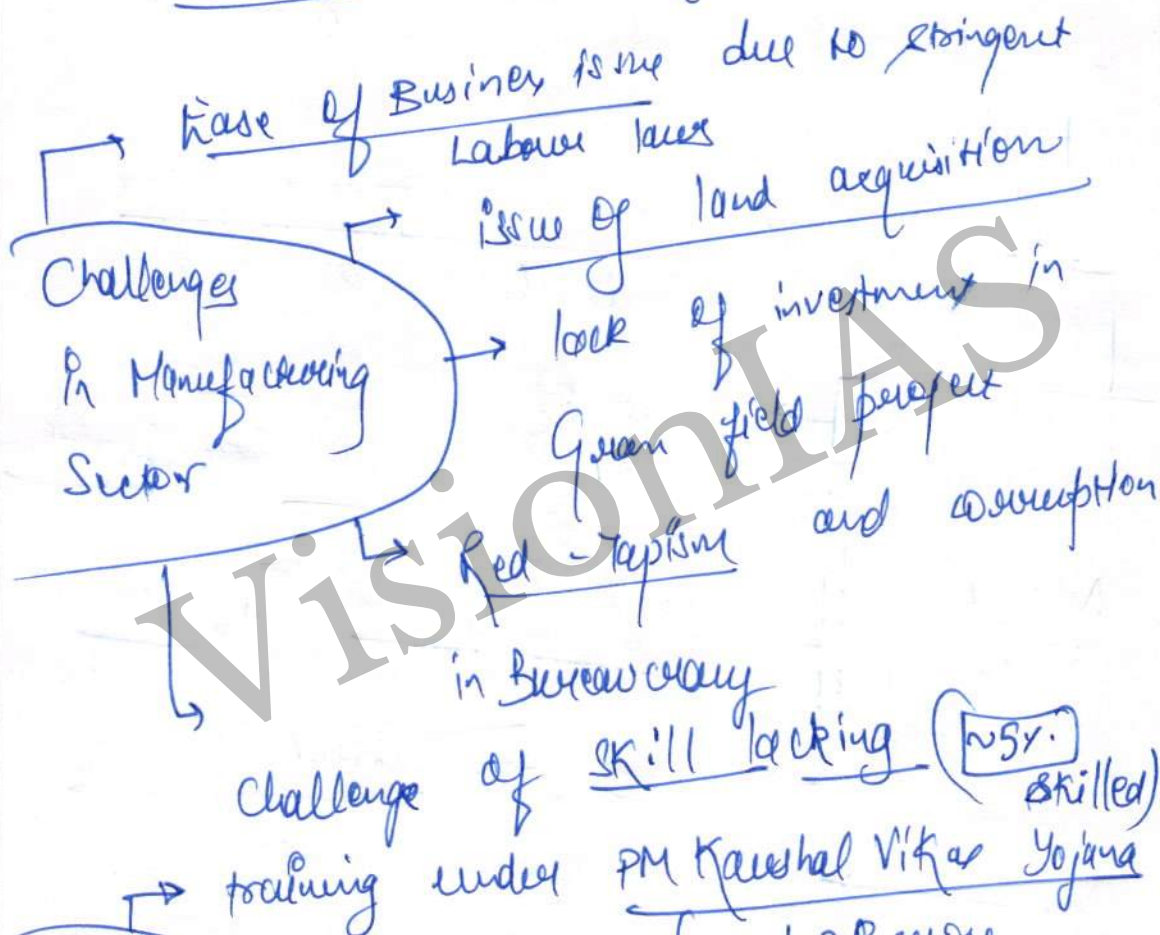 Ease of Business issue due to stringent
Labour laws
issue of land acquisition
Challenges
in Manufacturing
Sector
lack of investment in
Green field project
Red-Tapism and corruption
in Bureaucracy
Challenge of skill lacking (~5%.
skilled)
training under PM Kaushal Vikas Yojana
VisionIAS